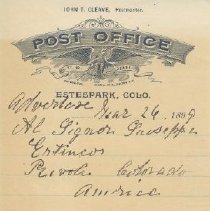 JOHN T. CLEAVE, Postmaster.
POST OFFICE
ESTESPARK, COLO.
Advertise Mar 26 1889
Al Signor Giuseppe
Colorado
America